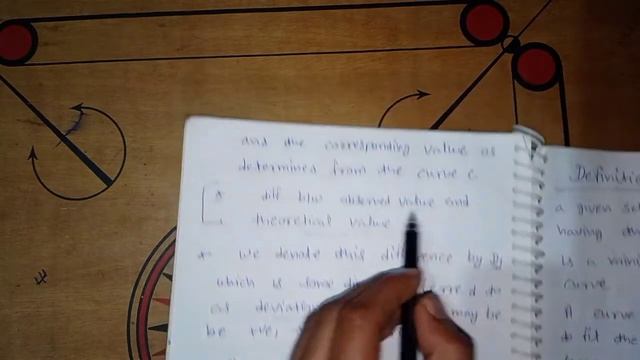 and the corresponding value as
determines from the curve c
* diff b/w observed value and
theoretical value
* we denote this difference by
which is some
as deviation may be
be +ve,
Definitio
a given se
having th
is a
curve
A curve
to fit the